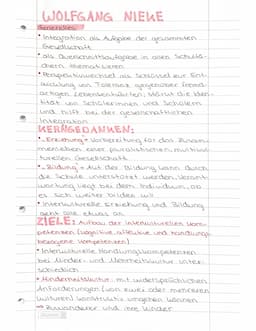 WOLFGANG NIEKE
Generelles:
• Integration als Aufgabe der gesamten
Gesellschaft
• als Querschnittsaufgabe in allen Schulfä-
chern thematisieren
• Perspektivwechsel als Schlüssel zur Ent-
wicklung von Toleranz gegenüber fremd-
artigen Lebensentwürfen, stärkt die Iden-
tität von Schülerinnen und Schülern
und hilft bei der gesellschaftlichen
Integration
KERNGEDANKEN:
• "Erziehung" = Vorbereitung für das Zusam-
menleben einer pluralistischen, multikul-
turellen Gesellschaft
• "Bildung" = Akt des Bildung kann durch
die Schule unterstützt werden, Verant-
wortung liegt bei dem Individuum, ob
es sich weiter bilden will
• Interkulturelle Erziehung und Bildung
geht alle etwas an
ZIELE: Aufbau der interkulturellen Kom-
petenzen (kognitive, affektive und handlungs-
bezogene Kompetenzen)
• Interkulturelle Handlungskompetenzen
bei Minder- und Mehrheitskultur unter-
schiedlich
• Minderheitskultur: mit widersprüchlichen
Anforderungen (von zwei oder mehreren
Kulturen) konstruktiv umgehen können
→ Zuwanderer und ihre Kinder